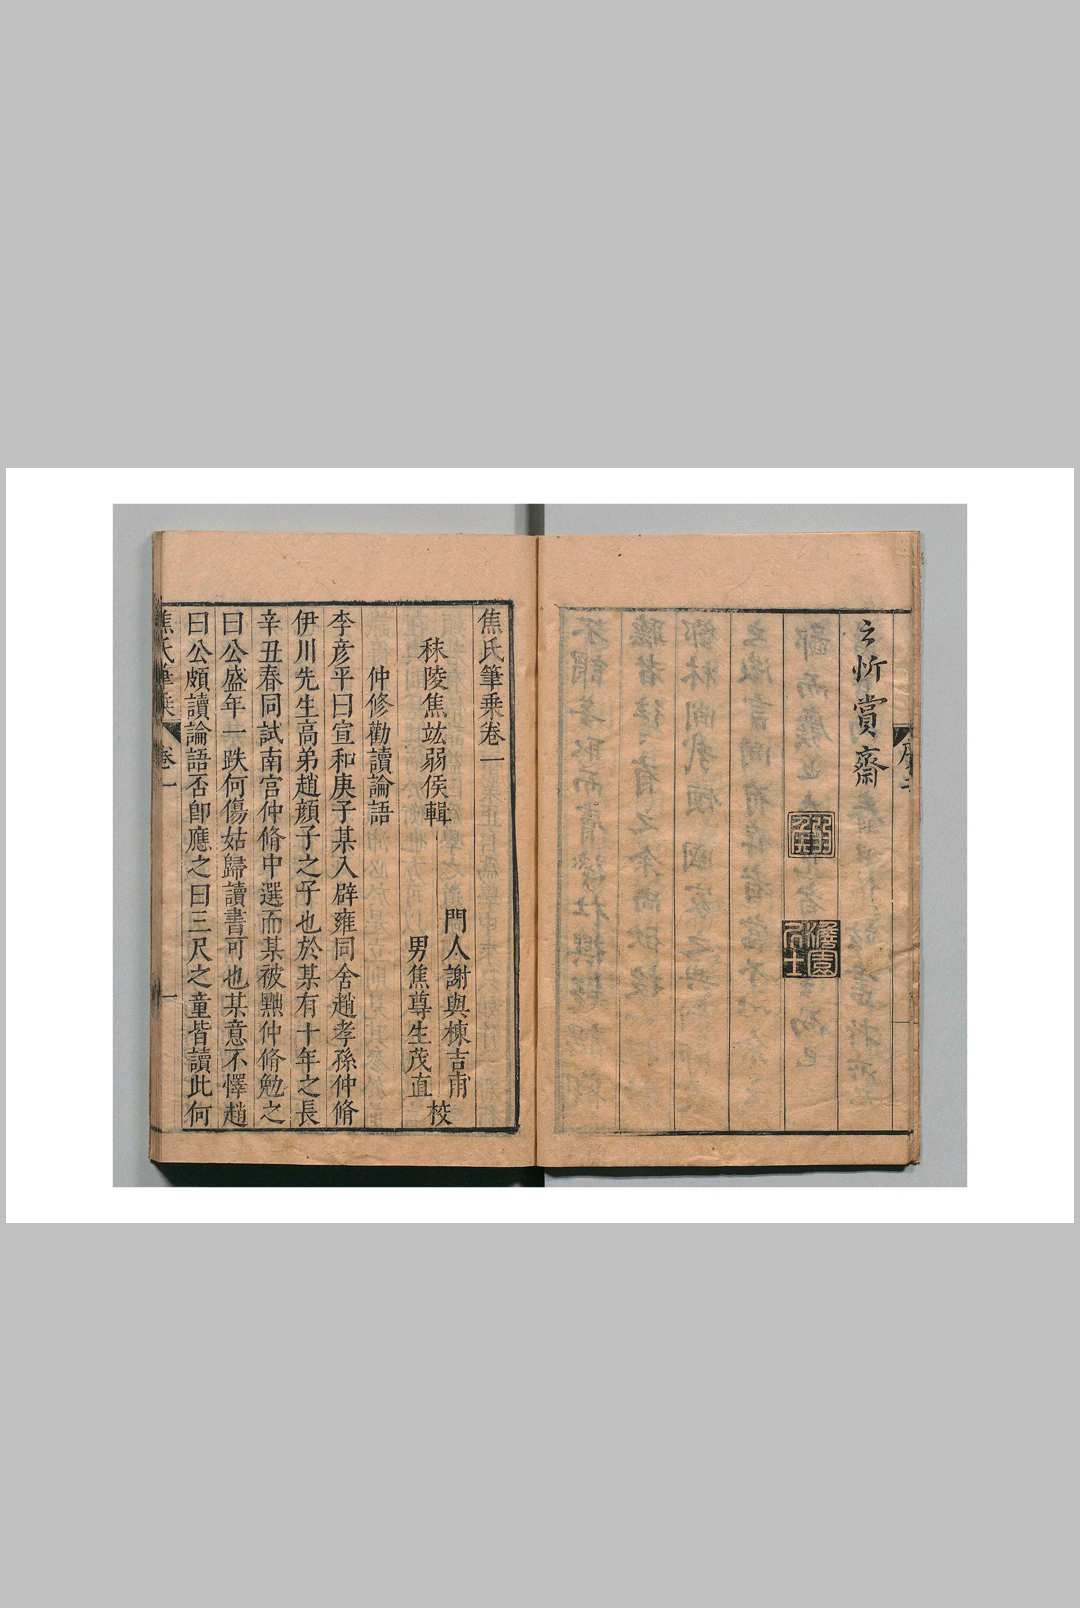 之忻賞齋
澹園居士
序二
焦氏筆乗卷一
秣陵焦竑弱侯輯
門人謝與棟吉甫
男焦尊生茂直
校
仲修勸讀論語
李彦平曰宣和庚子某入辟雍同舍趙孝孫仲脩
伊川先生高弟趙顔子之子也於某有十年之長
辛丑春同試南宫仲脩中選而某被黜仲脩勉之
曰公盛年一跌何傷姑歸讀書可也某意不懌趙
曰公頗讀論語否卽應之曰三尺之童皆讀此何
焦氏筆乗
卷一
一